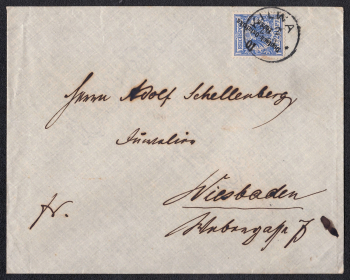 KILWA
Herrn Adolf Schellenberg
Juwelier
Wiesbaden
fr.
Webergasse